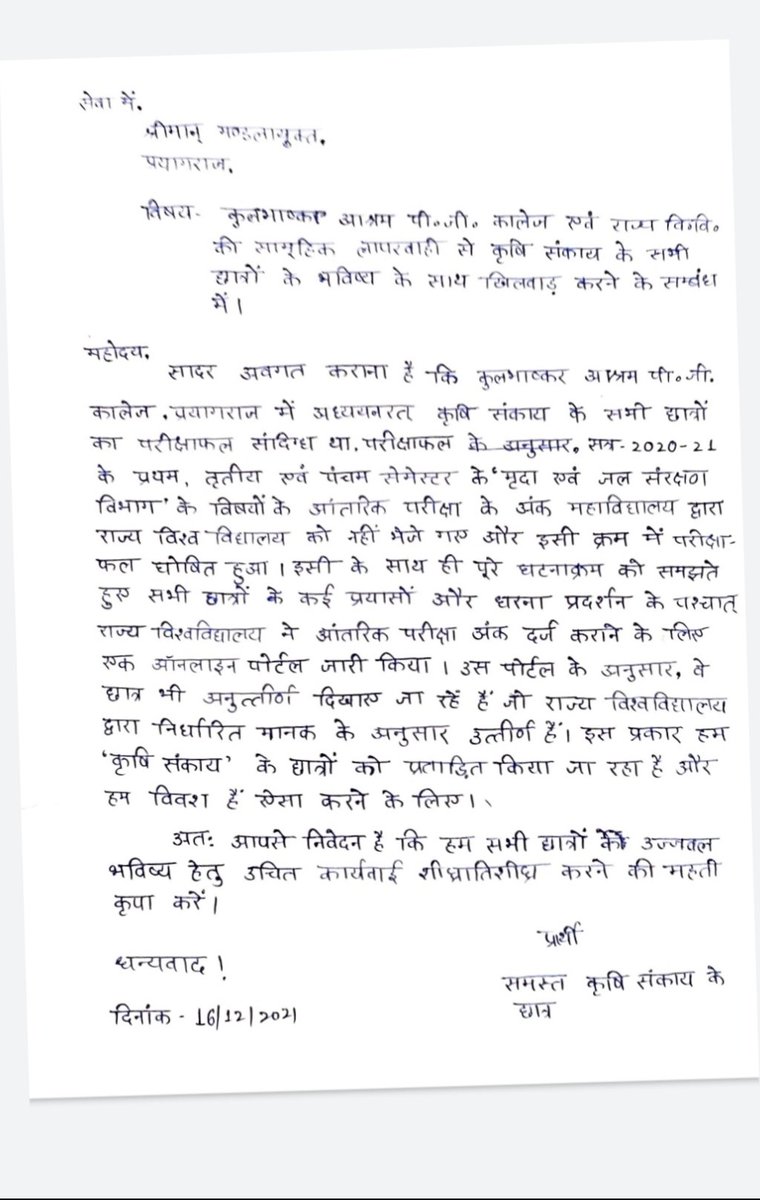 सेवा में,
श्रीमान् मण्डलायुक्त,
प्रयागराज,
विषय- कुलभाष्कर आश्रम पी०जी० कालेज एवं राज्य वि०वि०
की सामूहिक लापरवाही से कृषि संकाय के सभी
छात्रों के भविष्य के साथ खिलवाड़ करने के सम्बंध
में।
महोदय,
सादर अवगत कराना है कि कुलभाष्कर आश्रम पी०जी.
कालेज, प्रयागराज में अध्ययनरत कृषि संकाय के सभी छात्रों
का परीक्षाफल संदिग्ध था, परीक्षाफल के अनुसार, सत्र-2020-21
के प्रथम, तृतीय एवं पंचम सेमेस्टर के 'मृदा एवं जल संरक्षण
विभाग' के विषयों के आंतरिक परीक्षा के अंक महाविद्यालय द्वारा
राज्य विश्व विद्यालय को नहीं भेजे गए और इसी क्रम में परीक्षा-
फल घोषित हुआ। इसी के साथ ही पूरे घटनाक्रम को समझते
हुए सभी छात्रों के कई प्रयासों और धरना प्रदर्शन के पश्चात्
राज्य विश्वविद्यालय ने आंतरिक परीक्षा अंक दर्ज कराने के लिए
एक ऑनलाइन पोर्टल जारी किया। उस पोर्टल के अनुसार, वे
छात्र भी अनुत्तीर्ण दिखाए जा रहें हैं जो राज्य विश्वविद्यालय
द्वारा निर्धारित मानक के अनुसार उत्तीर्ण हैं। इस प्रकार हम
'कृषि संकाय' के छात्रों को प्रताड़ित किया जा रहा है और
हम विवश हैं ऐसा करने के लिए।
अतः आपसे निवेदन है कि हम सभी छात्रों के उज्जवल
भविष्य हेतु उचित कार्यवाई शीघ्रातिशीघ्र करने की महती
कृपा करें।
प्रार्थी
धन्यवाद!
समस्त कृषि संकाय के
छात्र
दिनांक - 16/12/2021